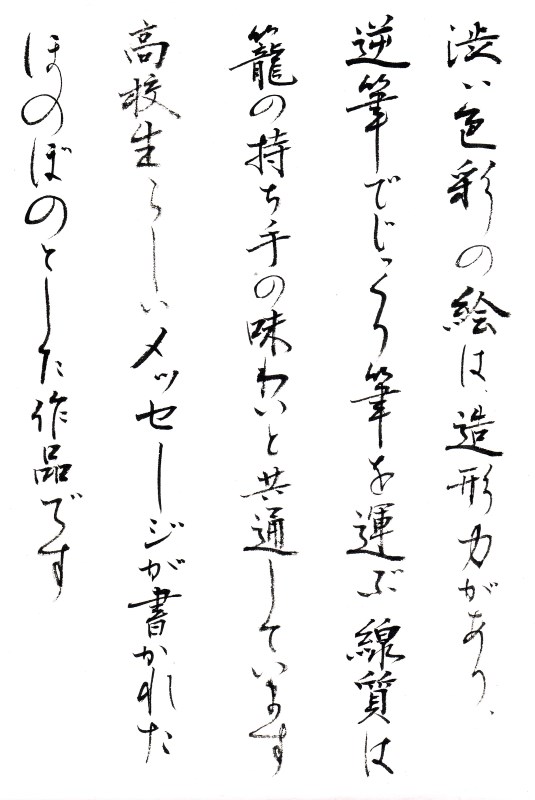 渋い色彩の絵は、造形力があり、
逆筆でじっくり筆を運ぶ線質は
籠の持ち手の味わいと共通しています
高校生らしいメッセージが書かれた
ほのぼのとした作品です